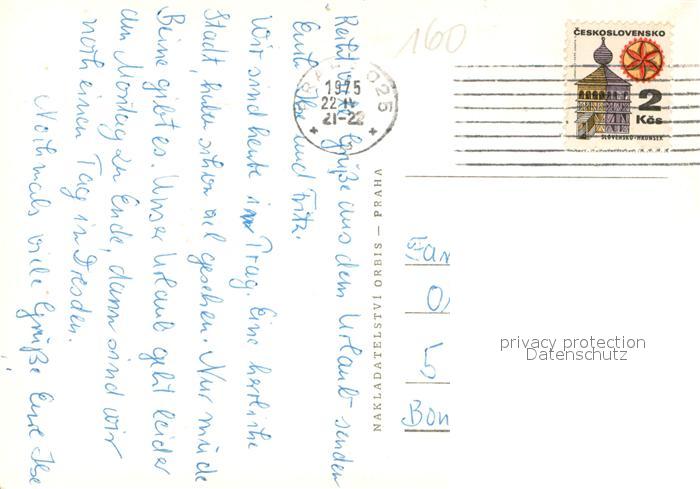 Recht viele Grüße aus dem Urlaub senden
Euch Ilse und Fritz.
Wir sind heute in Prag. Eine herrliche
Stadt, haben schon viel gesehen. Nur müde
Beine gibt es. Unser Urlaub geht leider
am Montag zu Ende, dann sind wir
noch einen Tag in Dresden.
Nochmals viele Grüße Eure Ilse
160
1975
22.IV
21-22
025
ČESKOSLOVENSKO
2
Kčs
SLOVENSKO-HRONSEK
NAKLADATELSTVÍ ORBIS — PRAHA
Fam
O
5
Bon
privacy protection
Datenschutz